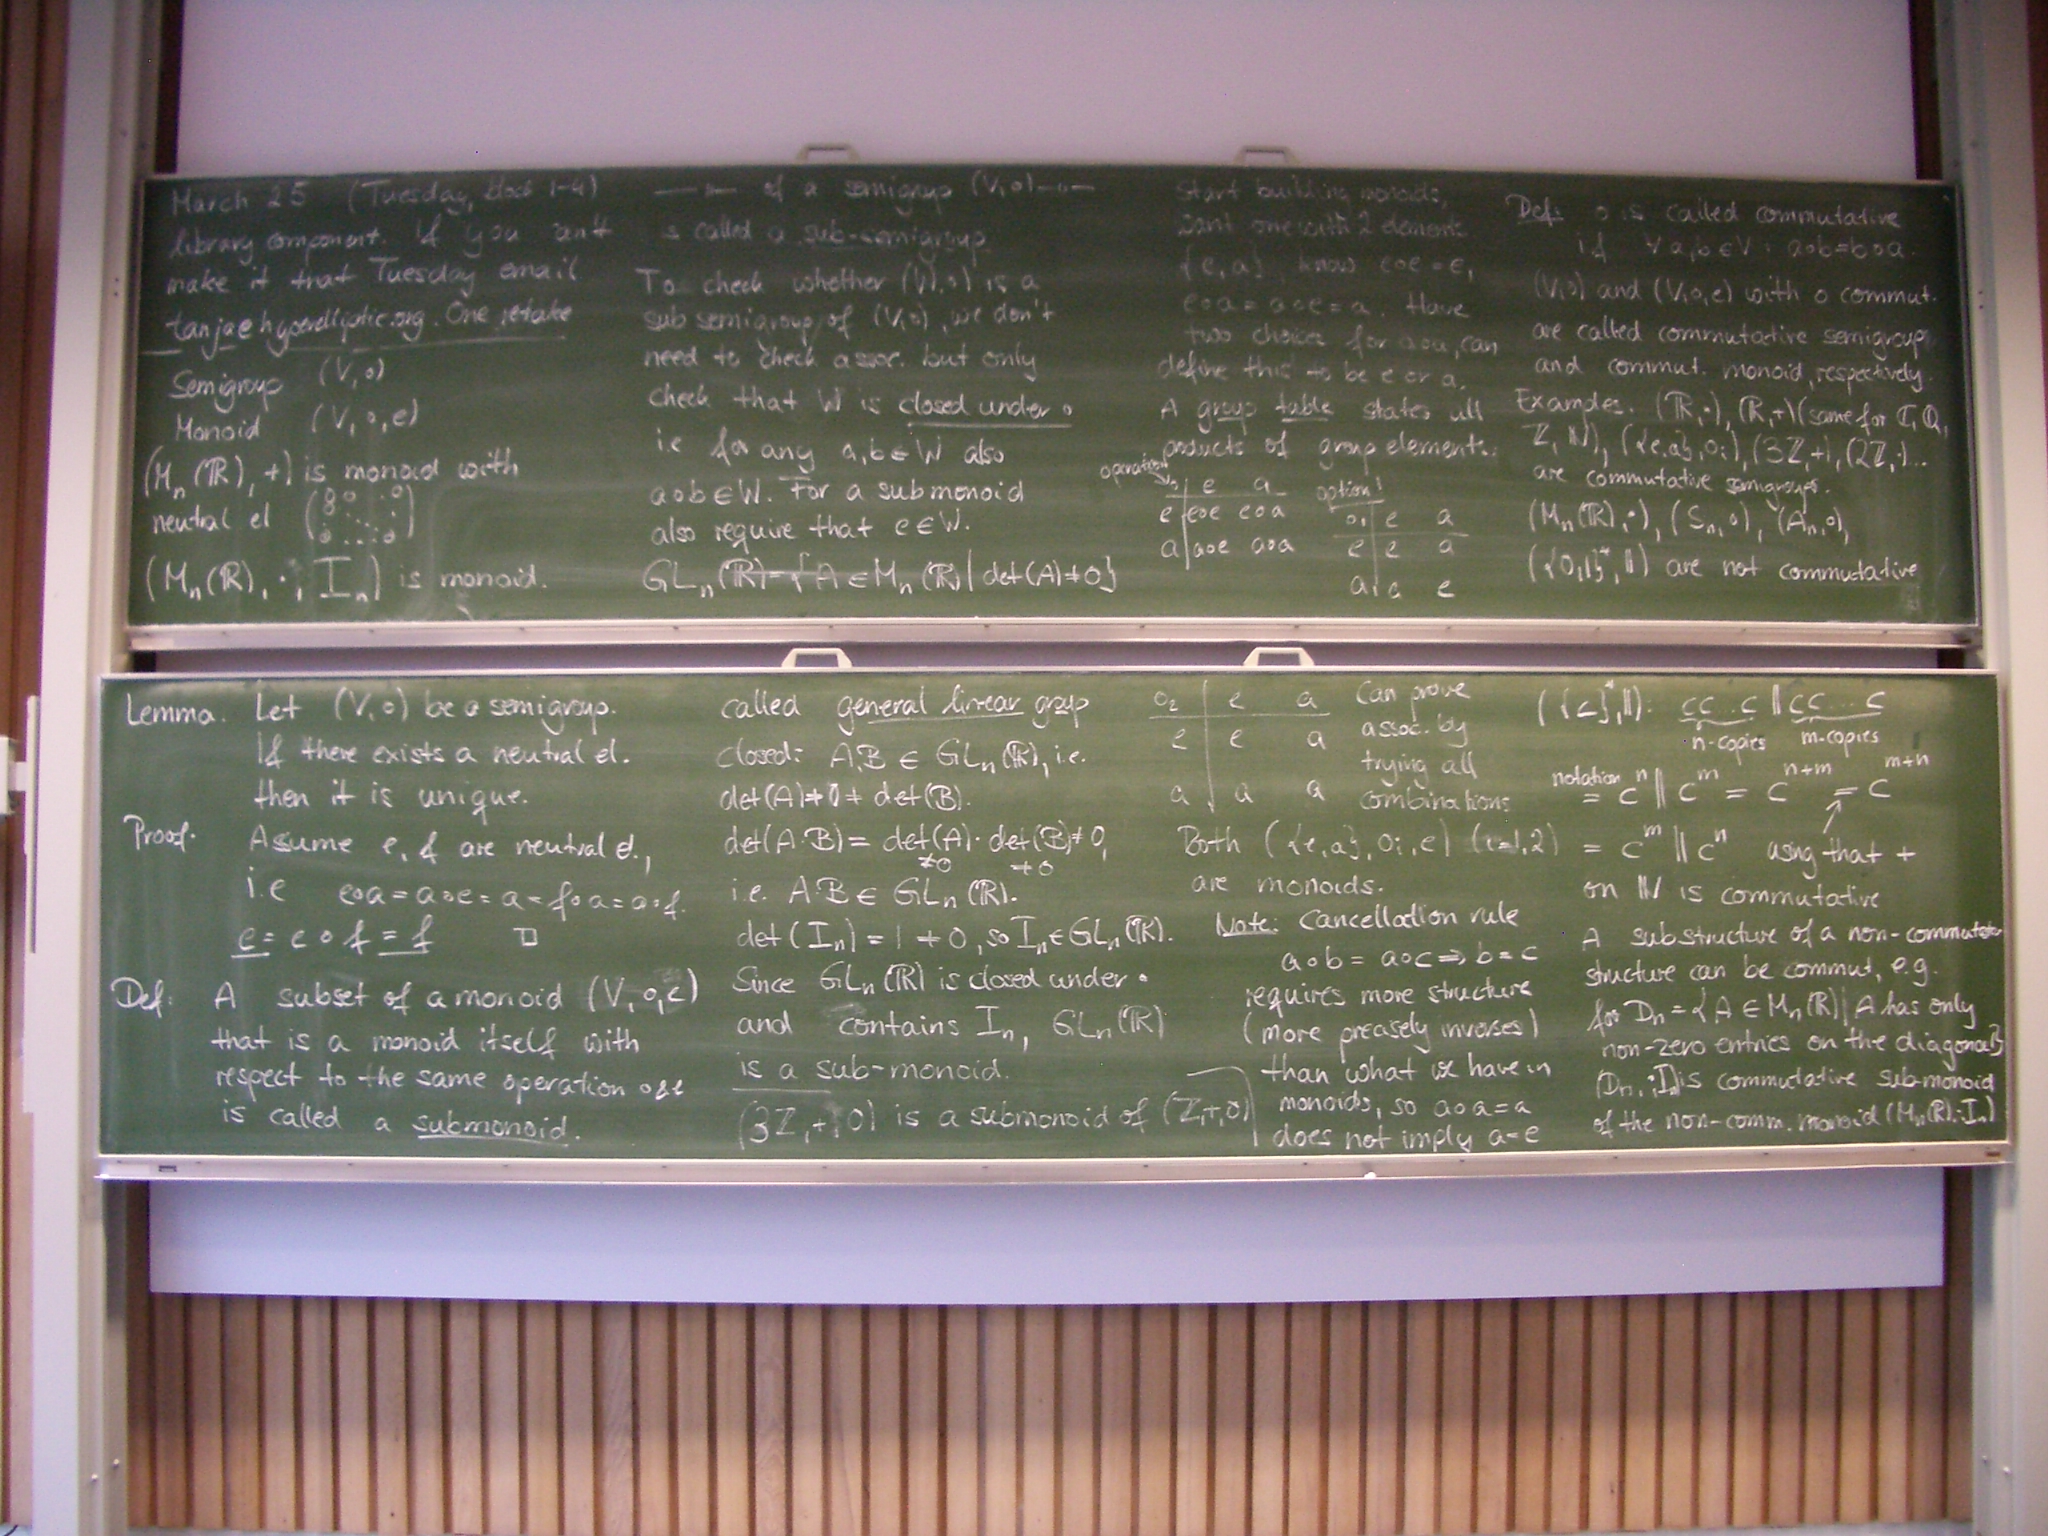 March 25 (Tuesday, block 1-4)
library component. If you can't
make it that Tuesday email
tanja@hyperelliptic.org. One retake
Semigroup (V,∘)
Monoid (V,∘,e)
(Mn(ℝ),+) is monoid with
neutral el (0 0 . 0 0 . . . . 0 . . . 0)
(Mn(ℝ),·,In) is monoid.
—"— of a semigroup (V,∘)—"—
is called a sub-semigroup.
To check whether (W,∘) is a
subsemigroup of (V,∘), we don't
need to check assoc. but only
check that W is closed under ∘
i.e for any a,b∈W also
a∘b∈W. For a submonoid
also require that e∈W.
GLn(ℝ)={A∈Mn(ℝ)|det(A)≠0}
Start building monoids,
want one with 2 elements
{e,a}, know e∘e=e,
e∘a=a∘e=a. Have
two choices for a∘a, can
define this to be e or a.
A group table states all
products of group elements.
operation
∘ e a
e e∘e e∘a
a a∘e a∘a
option 1
∘1 e a
e e a
a a e
Def: ∘ is called commutative
if ∀a,b∈V: a∘b=b∘a.
(V,∘) and (V,∘,e) with ∘ commut.
are called commutative semigroup
and commut. monoid, respectively.
Examples. (ℝ,·), (ℝ,+) (same for ℂ,ℚ,
ℤ,ℕ), ({e,a},∘i), (3ℤ,+), (2ℤ,·)...
are commutative semigroups.
(Mn(ℝ),·), (Sn,∘), (An,∘),
({0,1}*,||) are not commutative
Lemma. Let (V,∘) be a semigroup.
If there exists a neutral el.
then it is unique.
Proof. Assume e,f are neutral el.,
i.e e∘a=a∘e=a=f∘a=a∘f.
e=e∘f=f □
Def: A subset of a monoid (V,∘,e)
that is a monoid itself with
respect to the same operation ∘&e
is called a submonoid.
called general linear group
closed: A,B∈GLn(ℝ), i.e.
det(A)≠0≠det(B).
det(A·B)=det(A)·det(B)≠0,
≠0 ≠0
i.e. A·B∈GLn(ℝ).
det(In)=1≠0, so In∈GLn(ℝ).
Since GLn(ℝ) is closed under ·
and contains In, GLn(ℝ)
is a sub-monoid.
(3ℤ,+,0) is a submonoid of (ℤ,+,0)
∘2 e a
e e a
a a a
Can prove
assoc. by
trying all
combinations
Both ({e,a},∘i,e) (i=1,2)
are monoids.
Note: Cancellation rule
a∘b=a∘c⇒b=c
requires more structure
(more precisely inverses)
than what we have in
monoids, so a∘a=a
does not imply a=e
({c}*,||): cc...c || cc...c
n-copies m-copies
notation
= cⁿ || cᵐ = cⁿ⁺ᵐ = cᵐ⁺ⁿ
= cᵐ || cⁿ using that +
on ℕ is commutative
A substructure of a non-commutative
structure can be commut, e.g.
for Dn={A∈Mn(ℝ)|A has only
non-zero entries on the diagonal}
(Dn,·,In) is commutative sub-monoid
of the non-comm. monoid (Mn(ℝ),·,In)